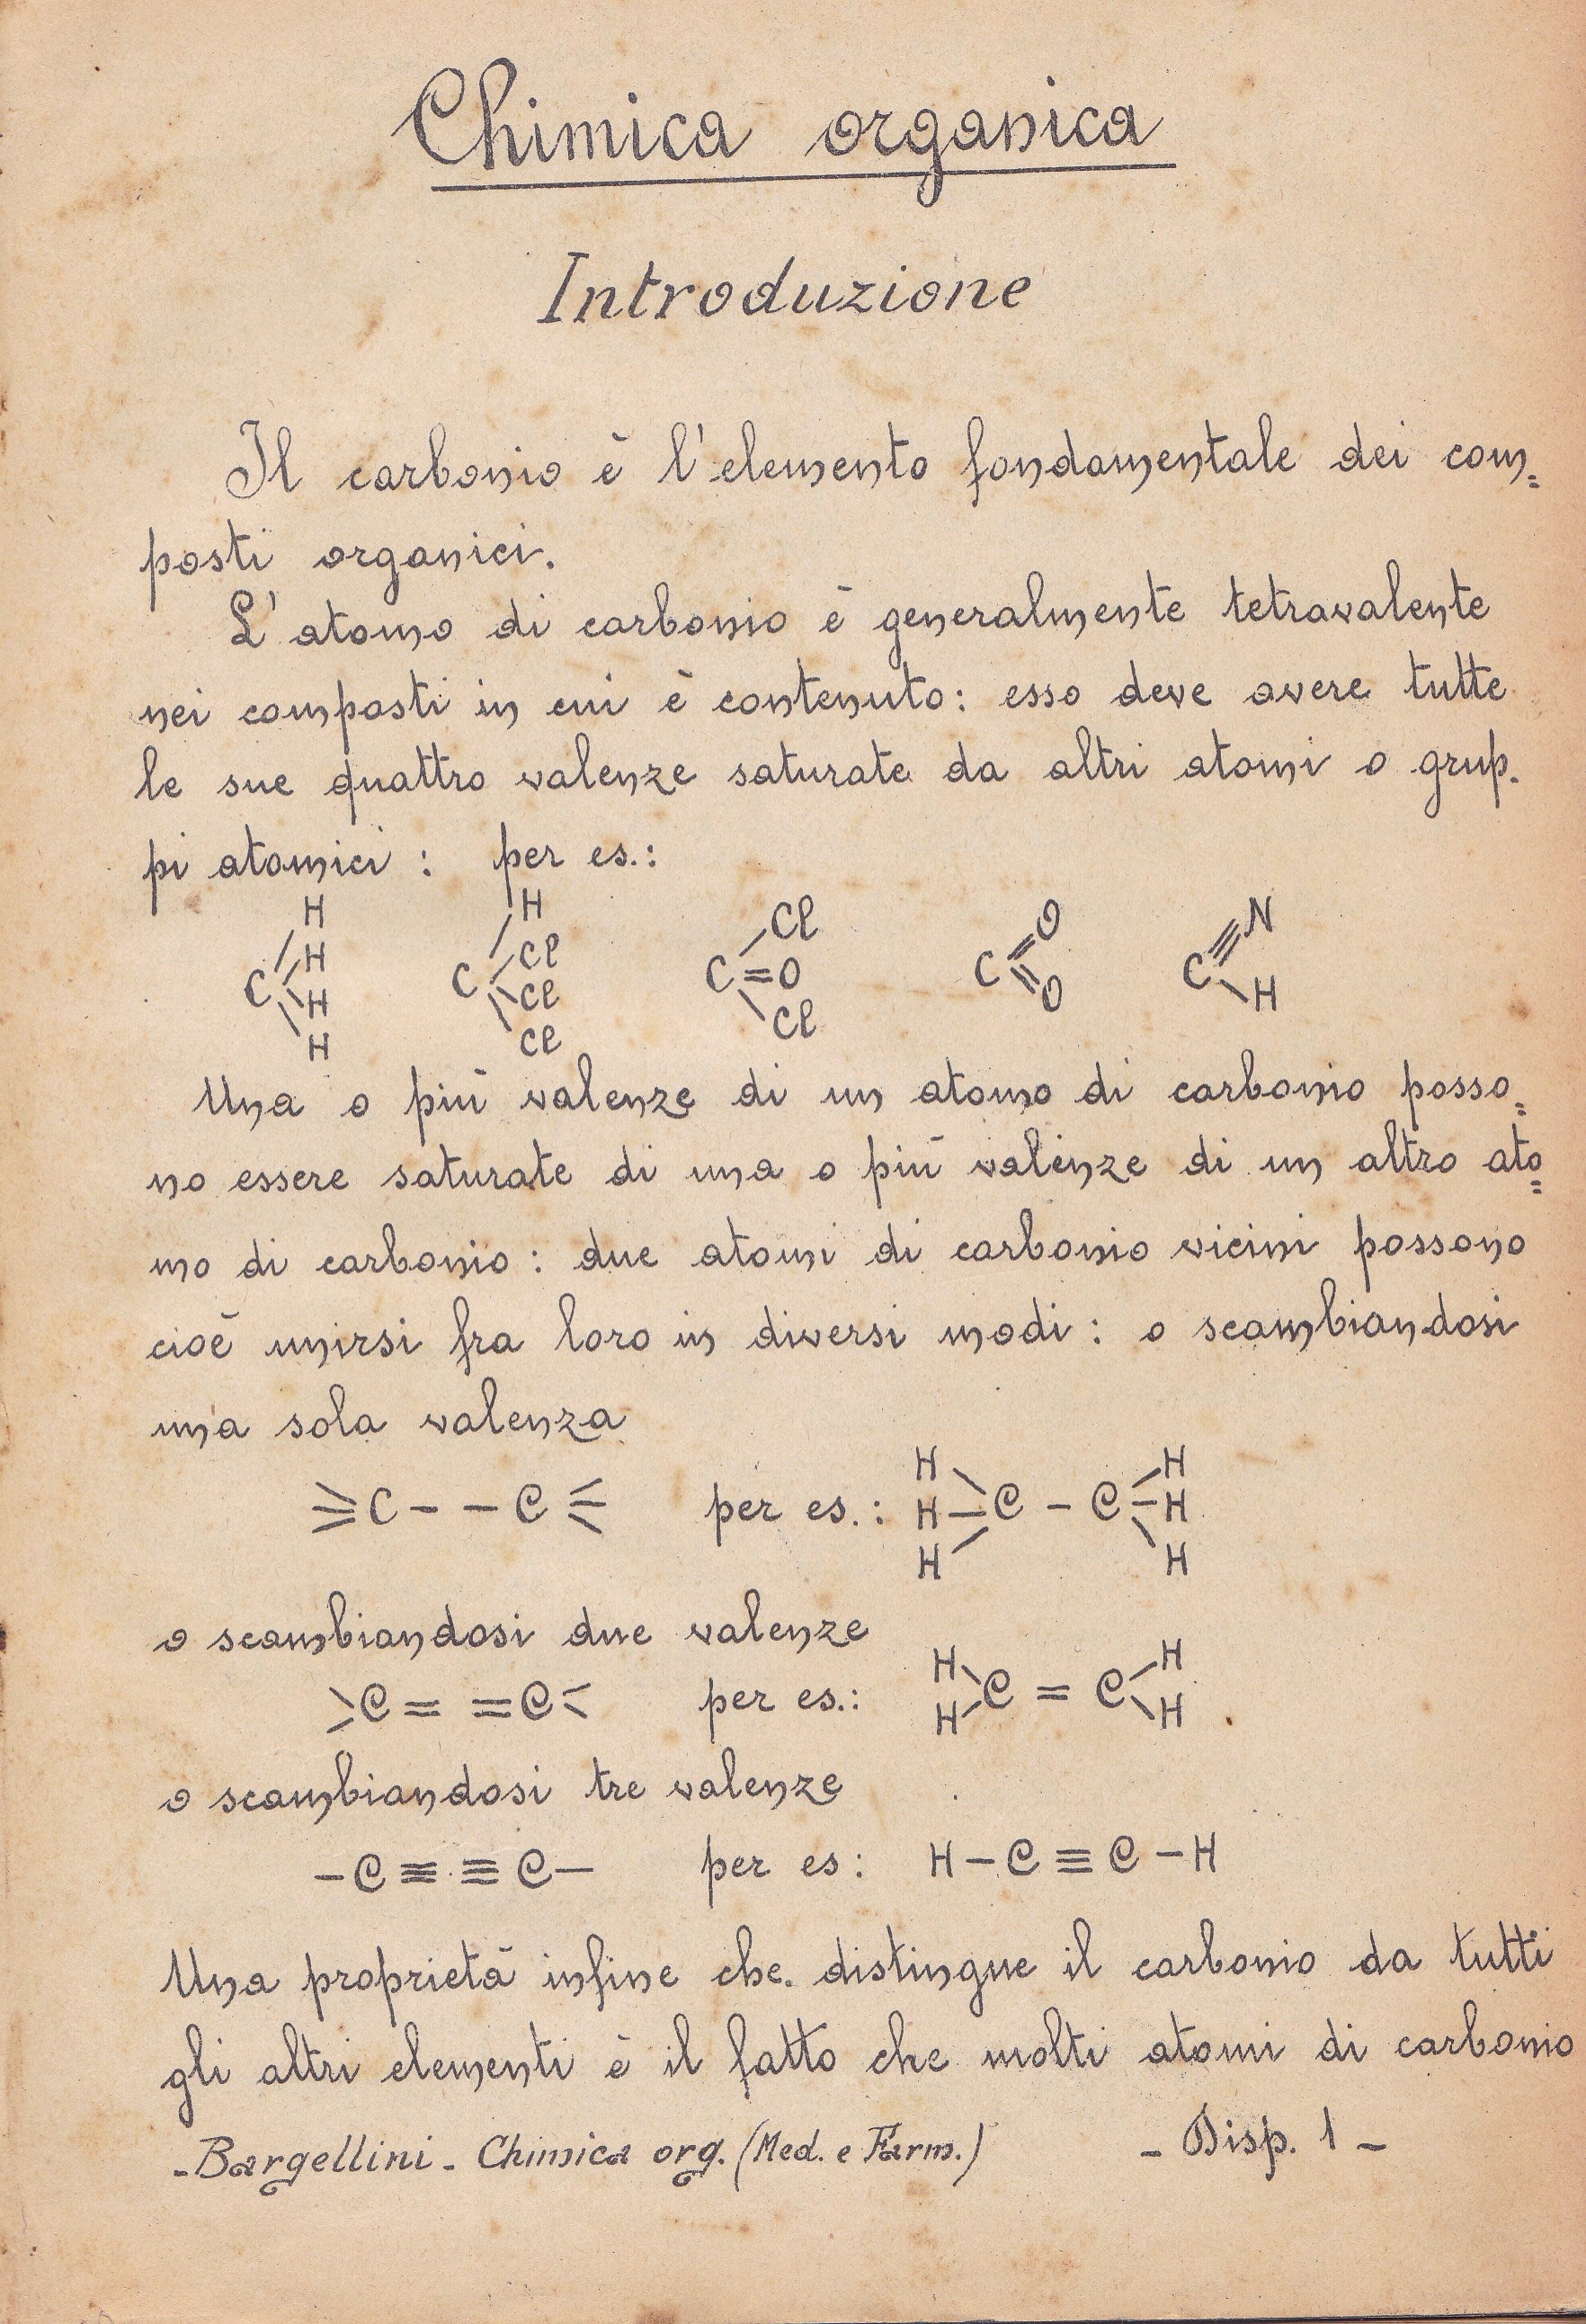 Chimica organica
Introduzione
Il carbonio è l'elemento fondamentale dei com=
posti organici.
L'atomo di carbonio è generalmente tetravalente
nei composti in cui è contenuto: esso deve avere tutte
le sue quattro valenze saturate da altri atomi o grup-
pi atomici: per es.:
H H Cl O N
H Cl
C C C=O C C
H Cl
H Cl Cl O H
Una o più valenze di un atomo di carbonio posso=
no essere saturate di una o più valenze di un altro ato=
mo di carbonio: due atomi di carbonio vicini possono
cioè unirsi fra loro in diversi modi: o scambiandosi
una sola valenza
H H
≥C - - C≤ per es.: H-C - C-H
H H
o scambiandosi due valenze
H H
>C= =C< per es.: C = C
H H
o scambiandosi tre valenze
-C≡ ≡C- per es: H-C≡C-H
Una proprietà infine che distingue il carbonio da tutti
gli altri elementi è il fatto che molti atomi di carbonio
- Bargellini - Chimica org. (Med. e Farm.) - Disp. 1 -